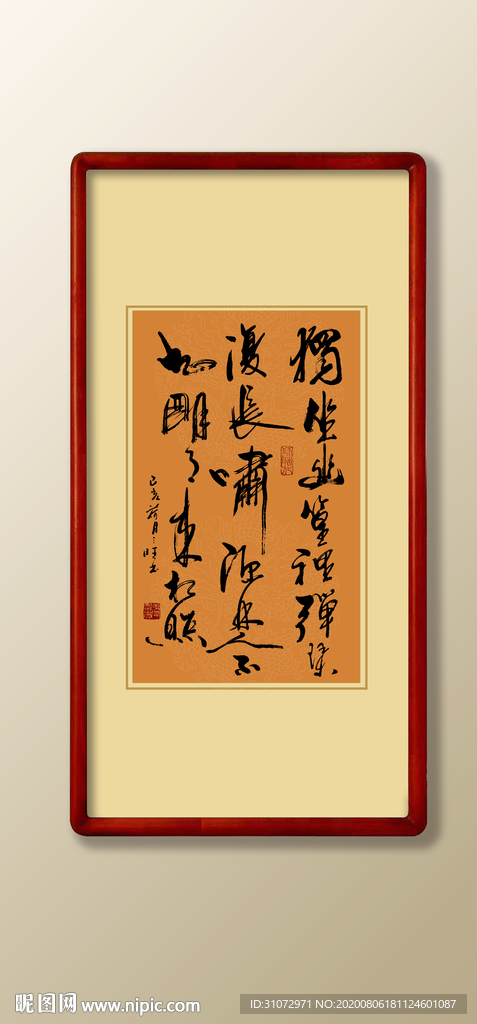 獨坐幽篁裡彈琴
復長嘯深林人不
知明月來相照
己亥荷月
昵图网 www.nipic.com
ID:31072971 NO:20200806181124601087